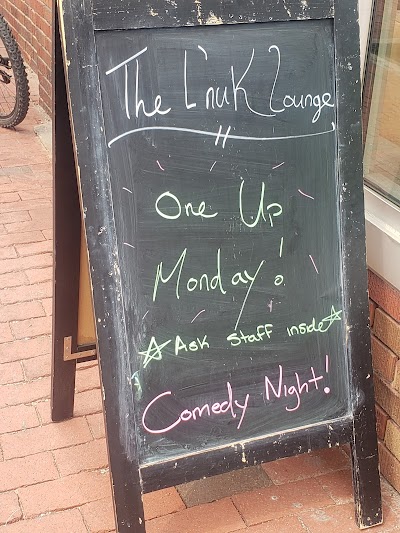 The L'nuK Lounge
One Up
Monday!
☆ Ask staff inside ☆
Comedy Night!